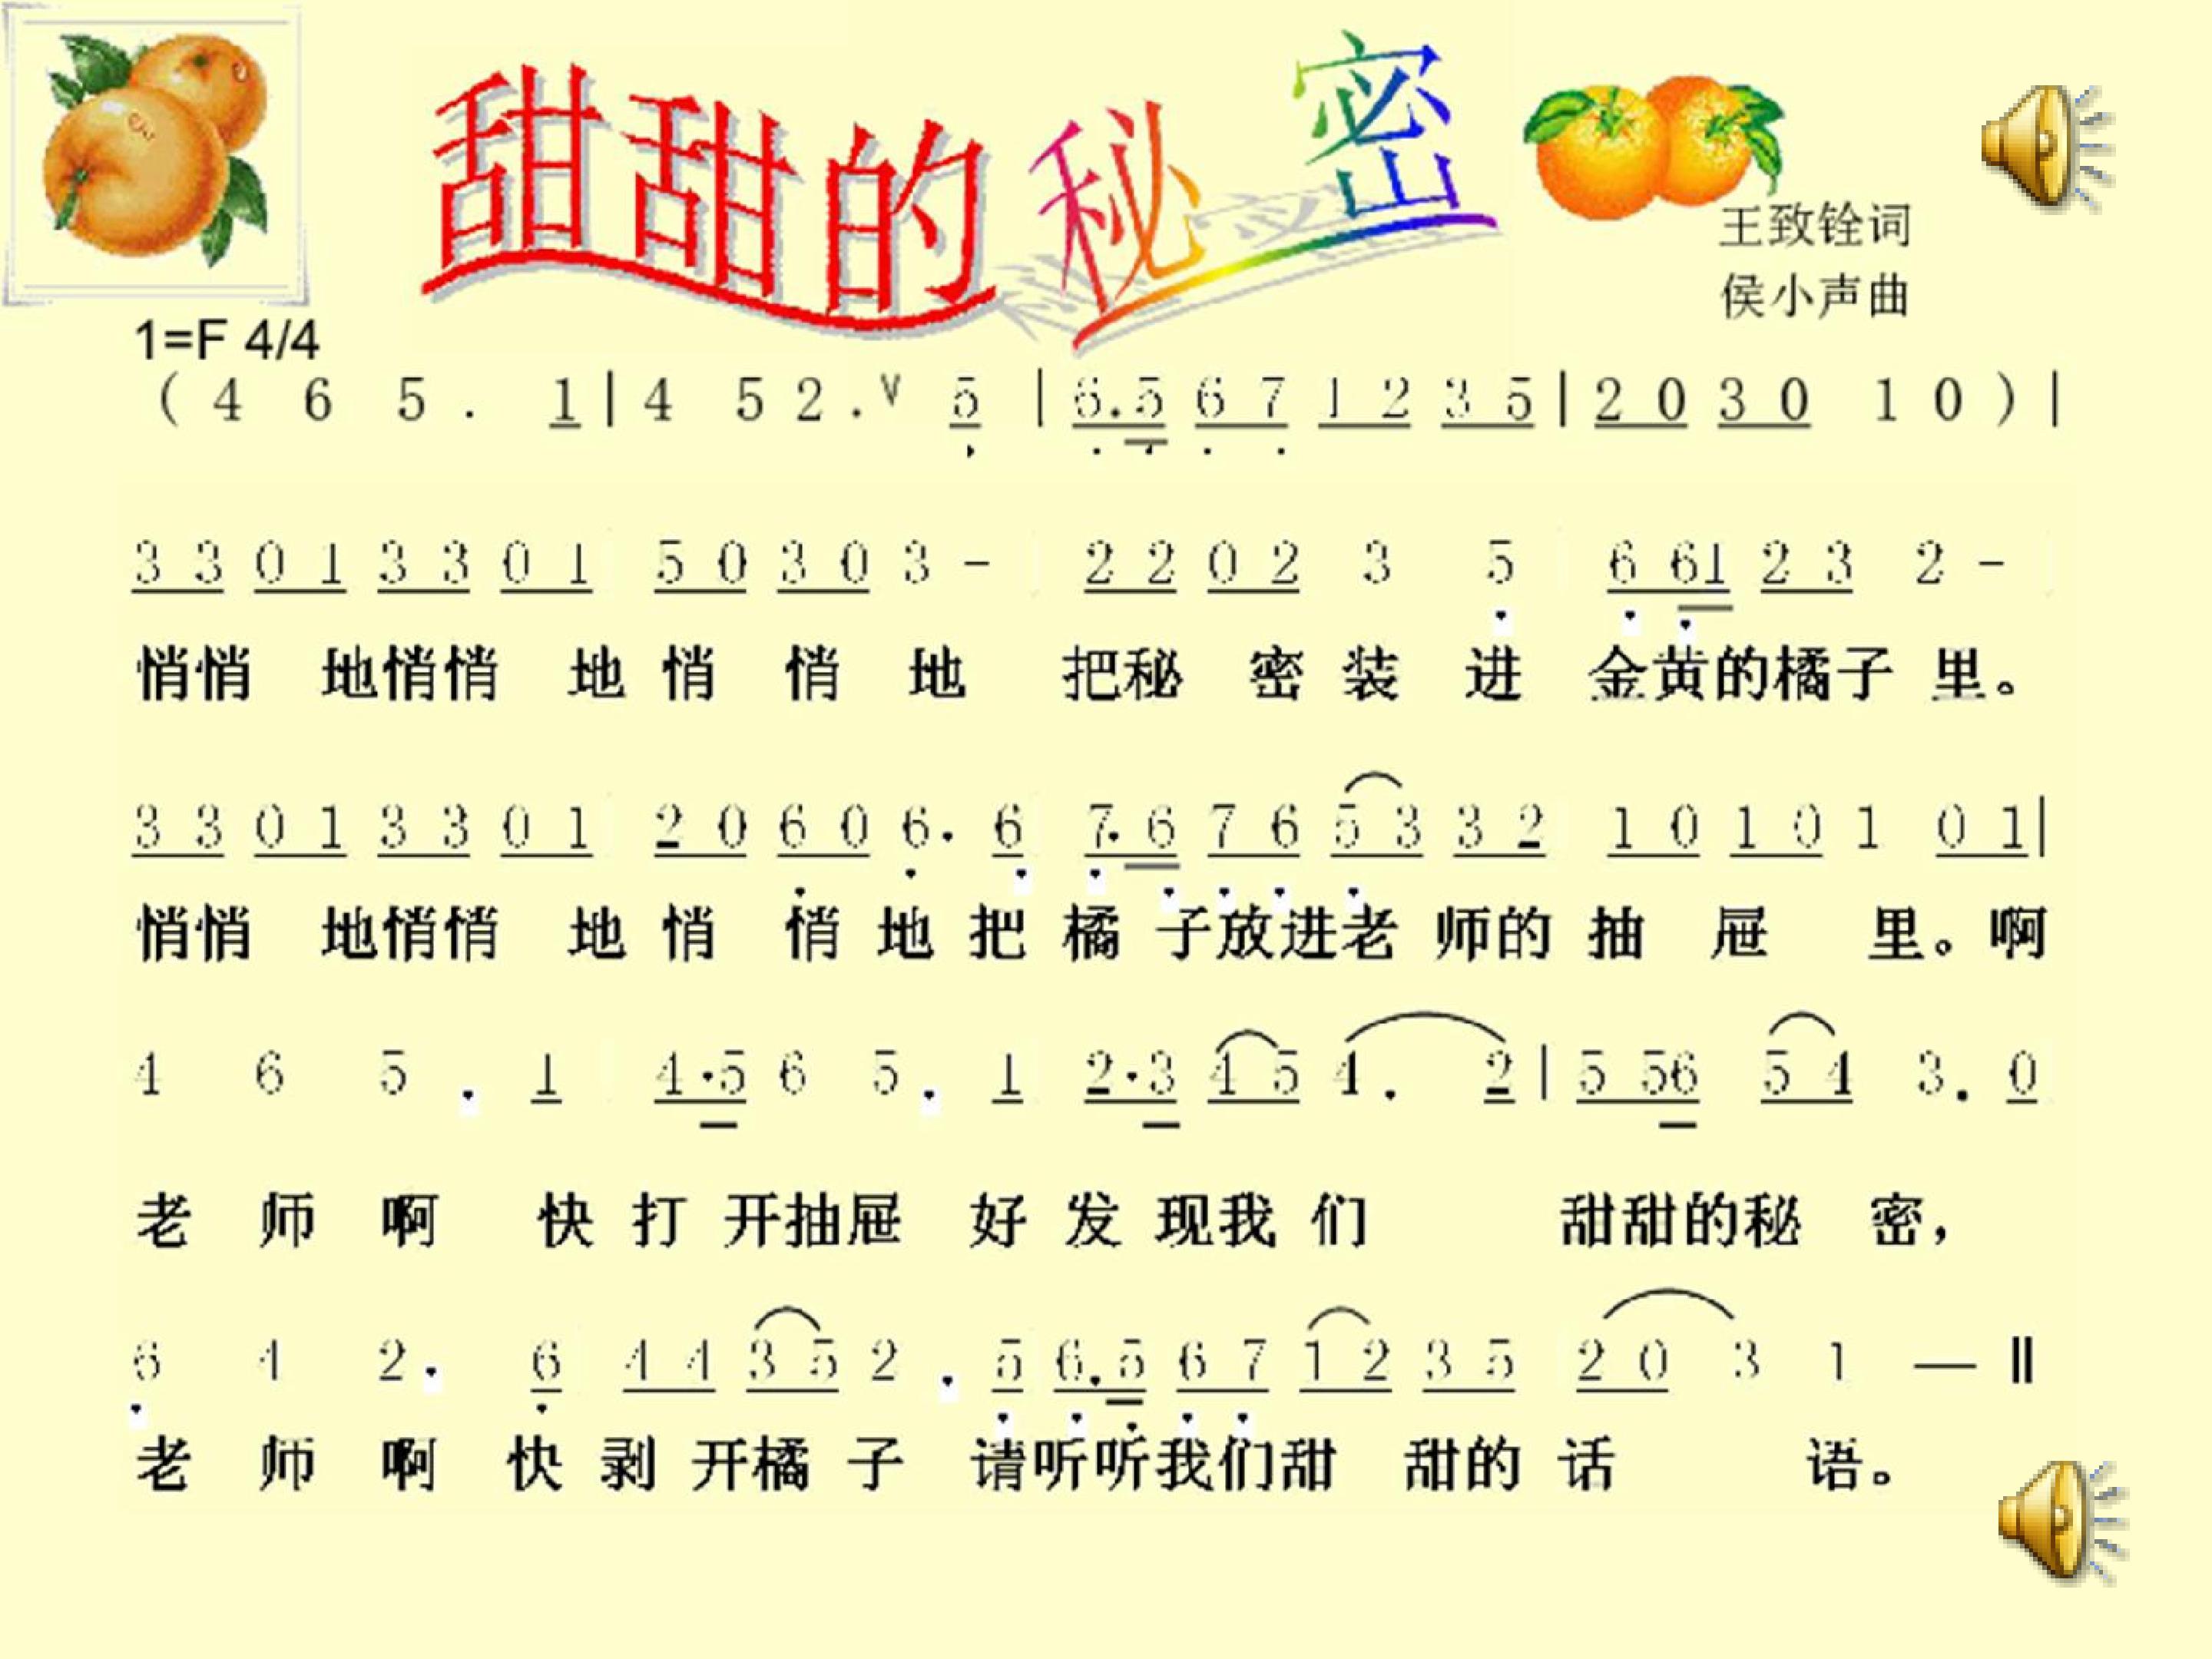 甜甜的秘密
王致铨词
侯小声曲
1=F 4/4
( 4 6 5 . 1 | 4 5 2 . V 5 | 6.5 6 7 1 2 3 5 | 2 0 3 0 1 0 ) |
3 3 0 1 3 3 0 1 5 0 3 0 3 - 2 2 0 2 3 5 6 61 2 3 2 -
悄悄 地悄悄 地 悄 悄 地 把秘 密 装 进 金黄的橘子 里。
3 3 0 1 3 3 0 1 2 0 6 0 6. 6 7.6 7 6 5 3 3 2 1 0 1 0 1 0 1|
悄悄 地悄悄 地 悄 悄 地 把 橘 子放进老 师的 抽 屉 里。啊
4 6 5 . 1 4·5 6 5 . 1 2·3 4 5 4 . 2 | 5 56 5 4 3 . 0
老 师 啊 快 打 开抽屉 好 发 现我 们 甜甜的秘 密，
6 4 2 . 6 4 4 3 5 2 . 5 6.5 6 7 1 2 3 5 2 0 3 1 — ‖
老 师 啊 快 剥 开橘 子 请听听我们甜 甜的 话 语。